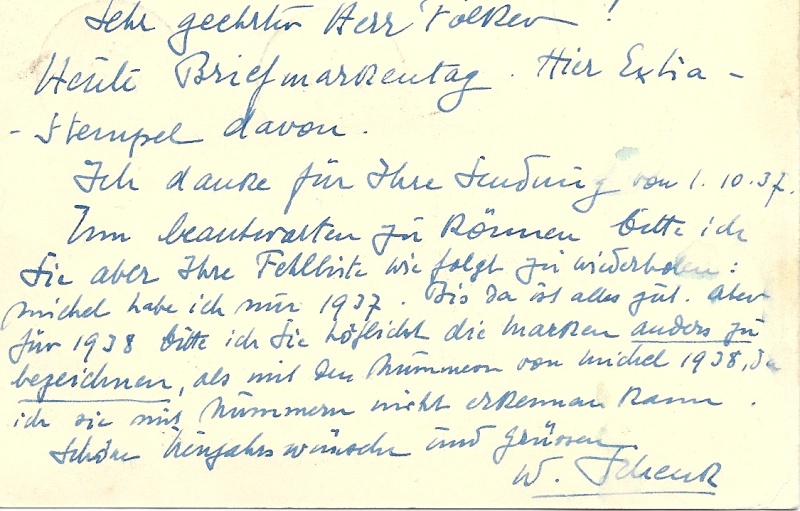 Sehr geehrter Herr Völker !
Heute Briefmarkentag. Hier Extra -
- Stempel davon.
Ich danke für Ihre Sendung von 1.10.37.
Um beantworten zu können bitte ich
Sie aber Ihre Fehlliste wie folgt zu wiederholen :
Michel habe ich nur 1937. Bis da ist alles gut. Aber
für 1938 bitte ich Sie höflichst die Marken anders zu
bezeichnen, als mit den Nummern von Michel 1938, da
ich sie mit Nummern nicht erkennen kann .
Schöne Neujahrswünsche und Grüssen
W. Schenk